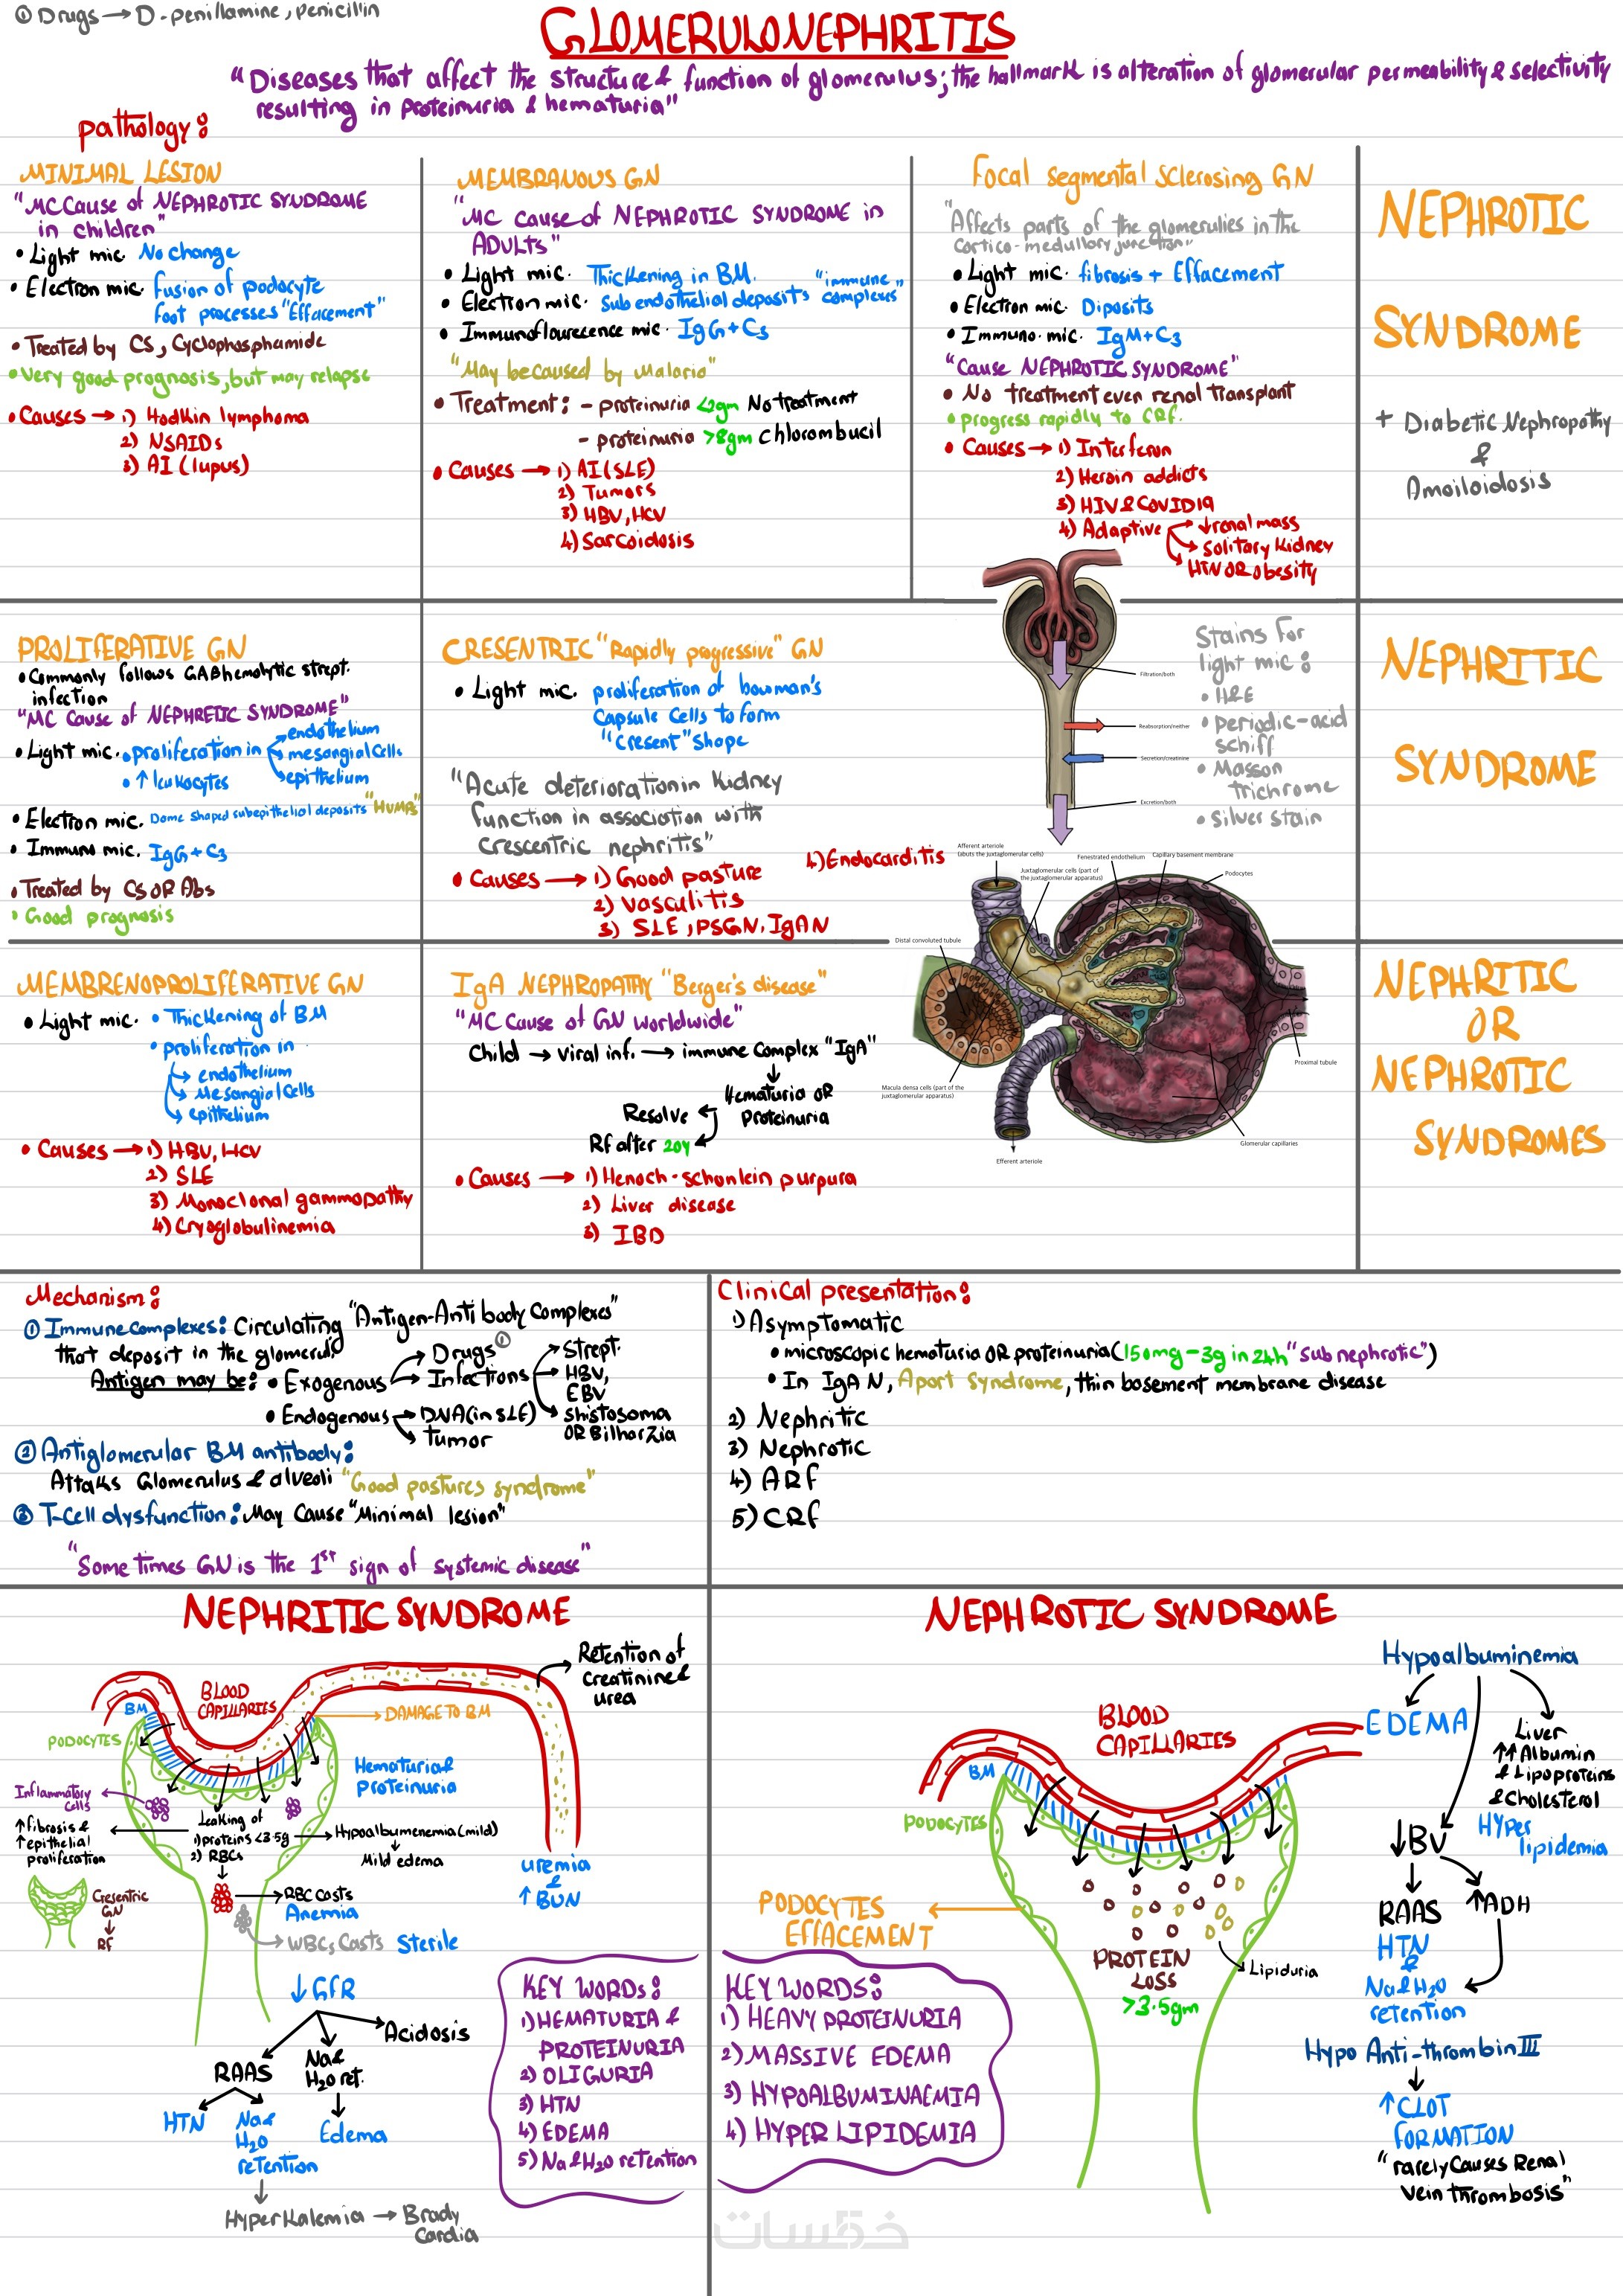 ① Drugs → D-penillamine, penicillin
GLOMERULONEPHRITIS
"Diseases that affect the structure & function of glomerulus; the hallmark is alteration of glomerular permeability & selectivity
resulting in proteinuria & hematuria"
pathology:
MINIMAL LESION
"MC Cause of NEPHROTIC SYNDROME
in children"
• Light mic. No change
• Electron mic. fusion of podocyte
foot processes "Effacement"
• Treated by CS, Cyclophosphamide
• Very good prognosis, but may relapse
• Causes → 1) Hodkin lymphoma
2) NSAIDs
3) AI (lupus)
MEMBRANOUS GN
"MC Cause of NEPHROTIC SYNDROME in
ADULTS"
• Light mic. Thickening in BM.
• Electron mic. Sub endothelial deposits "immune complexes"
• Immunoflourecence mic. IgG + C3
"May be caused by Malaria"
• Treatment: - proteinuria <2gm No treatment
- proteinuria >8gm Chlorombucil
• Causes → 1) AI (SLE)
2) Tumors
3) HBV, HCV
4) Sarcoidosis
Focal segmental Sclerosing GN
"Affects parts of the glomerulies in the
Cortico-medullary junction"
• Light mic. fibrosis + Effacement
• Electron mic. Diposits
• Immuno. mic. IgM + C3
"Cause NEPHROTIC SYNDROME"
• No treatment even renal transplant
• progress rapidly to CRF.
• Causes → 1) Interferon
2) Heroin addicts
3) HIV & COVID19
4) Adaptive → ↓renal mass
→ Solitary Kidney
→ HTN OR obesity
NEPHROTIC
SYNDROME
+ Diabetic Nephropathy
&
Amoiloidosis
PROLIFERATIVE GN
• Commonly follows GABhemolytic strept.
infection
"MC Cause of NEPHRETIC SYNDROME"
• Light mic. • proliferation in → endothelium
→ mesangial Cells
→ epithelium
• ↑ leukocytes
• Electron mic. Dome Shaped subepithelial deposits "HUMPS"
• Immuno mic. IgG + C3
• Treated by CS OR Abs
• Good prognosis
CRESENTRIC "Rapidly progressive" GN
• Light mic. proliferation of bowman's
Capsule Cells to form
"Cresent" Shape
"Acute deterioration in Kidney
function in association with
Crescentric nephritis"
• Causes → 1) Good pasture
2) Vasculitis
3) SLE, PSGN, IgAN
4) Endocarditis
Filtration/both
Reabsorption/neither
Secretion/creatinine
Excretion/both
Stains for
light mic:
• H&E
• periodic-acid
schiff
• Masson
trichrome
• Silver stain
NEPHRITIC
SYNDROME
Afferent arteriole
(abuts the juxtaglomerular cells)
Juxtaglomerular cells (part of
the juxtaglomerular apparatus)
Fenestrated endothelium
Capillary basement membrane
Podocytes
Distal convoluted tubule
Macula densa cells (part of the
juxtaglomerular apparatus)
Proximal tubule
Glomerular capillaries
Efferent arteriole
MEMBRENOPROLIFERATIVE GN
• Light mic. • Thickening of BM
• proliferation in
→ endothelium
→ Mesangial Cells
→ epithelium
• Causes → 1) HBV, HCV
2) SLE
3) Monoclonal gammopathy
4) Cryoglobulinemia
IgA NEPHROPATHY "Berger's disease"
"MC Cause of GN worldwide"
Child → viral inf. → immune Complex "IgA"
↓
Hematuria OR
Proteinuria
Resolve
Rf after 20y
• Causes → 1) Henoch-schonlein purpura
2) Liver disease
3) IBD
NEPHRITIC
OR
NEPHROTIC
SYNDROMES
Mechanism:
① Immune complexes: Circulating "Antigen-Antibody Complexes"
that deposit in the glomeruli
Antigen may be: • Exogenous → Drugs①
→ Infections → Strept.
→ HBV,
EBV
→ Shistosoma
OR Bilharzia
• Endogenous → DNA (in SLE)
→ tumor
② Antiglomerular BM antibody:
Attaks Glomerulus & alveoli "Good pastures syndrome"
③ T-Cell dysfunction: May Cause "Minimal lesion"
"Some times GN is the 1st sign of systemic disease"
Clinical presentation:
1) Asymptomatic
• microscopic hematuria OR proteinuria (150mg-3g in 24h "Sub nephrotic")
• In IgA N, Aport Syndrome, thin basement membrane disease
2) Nephritic
3) Nephrotic
4) ARF
5) CRF
NEPHRITIC SYNDROME
Retention of
Creatinine &
urea
BLOOD
CAPILLARIES
BM
DAMAGE TO BM
PODOCYTES
Hematuria &
proteinuria
Inflammatory
Cells
↑ fibrosis &
↑ epithelial
proliferation
Leaking of
1) proteins <3.5g → Hypoalbumenemia (mild)
2) RBCs
↓
Mild edema
uremia
&
↑ BUN
Cresentric
GN
↓
RF
RBC casts
Anemia
WBCs Casts Sterile
↓ GFR
Acidosis
RAAS
Na &
H2O ret.
HTN
Na &
H2O
retention
Edema
Hyper Kalemia → Brady
Cardia
KEY WORDS:
1) HEMATURIA &
PROTEINURIA
2) OLIGURIA
3) HTN
4) EDEMA
5) Na & H2O retention
NEPHROTIC SYNDROME
Hypoalbuminemia
BLOOD
CAPILLARIES
EDEMA
Liver
↑↑ Albumin
& Lipoproteins
& Cholesterol
HYper
lipidemia
BM
PODOCYTES
↓BV
RAAS
↑ADH
HTN
&
Na & H2O
retention
PODOCYTES
EFFACEMENT
PROTEIN
LOSS
>3.5gm
Lipiduria
KEY WORDS:
1) HEAVY PROTEINURIA
2) MASSIVE EDEMA
3) HYPOALBUMINAEMIA
4) HYPER LIPIDEMIA
Hypo Anti-thrombin III
↓
↑ CLOT
FORMATION
"rarely Causes Renal
Vein thrombosis"
خمسات